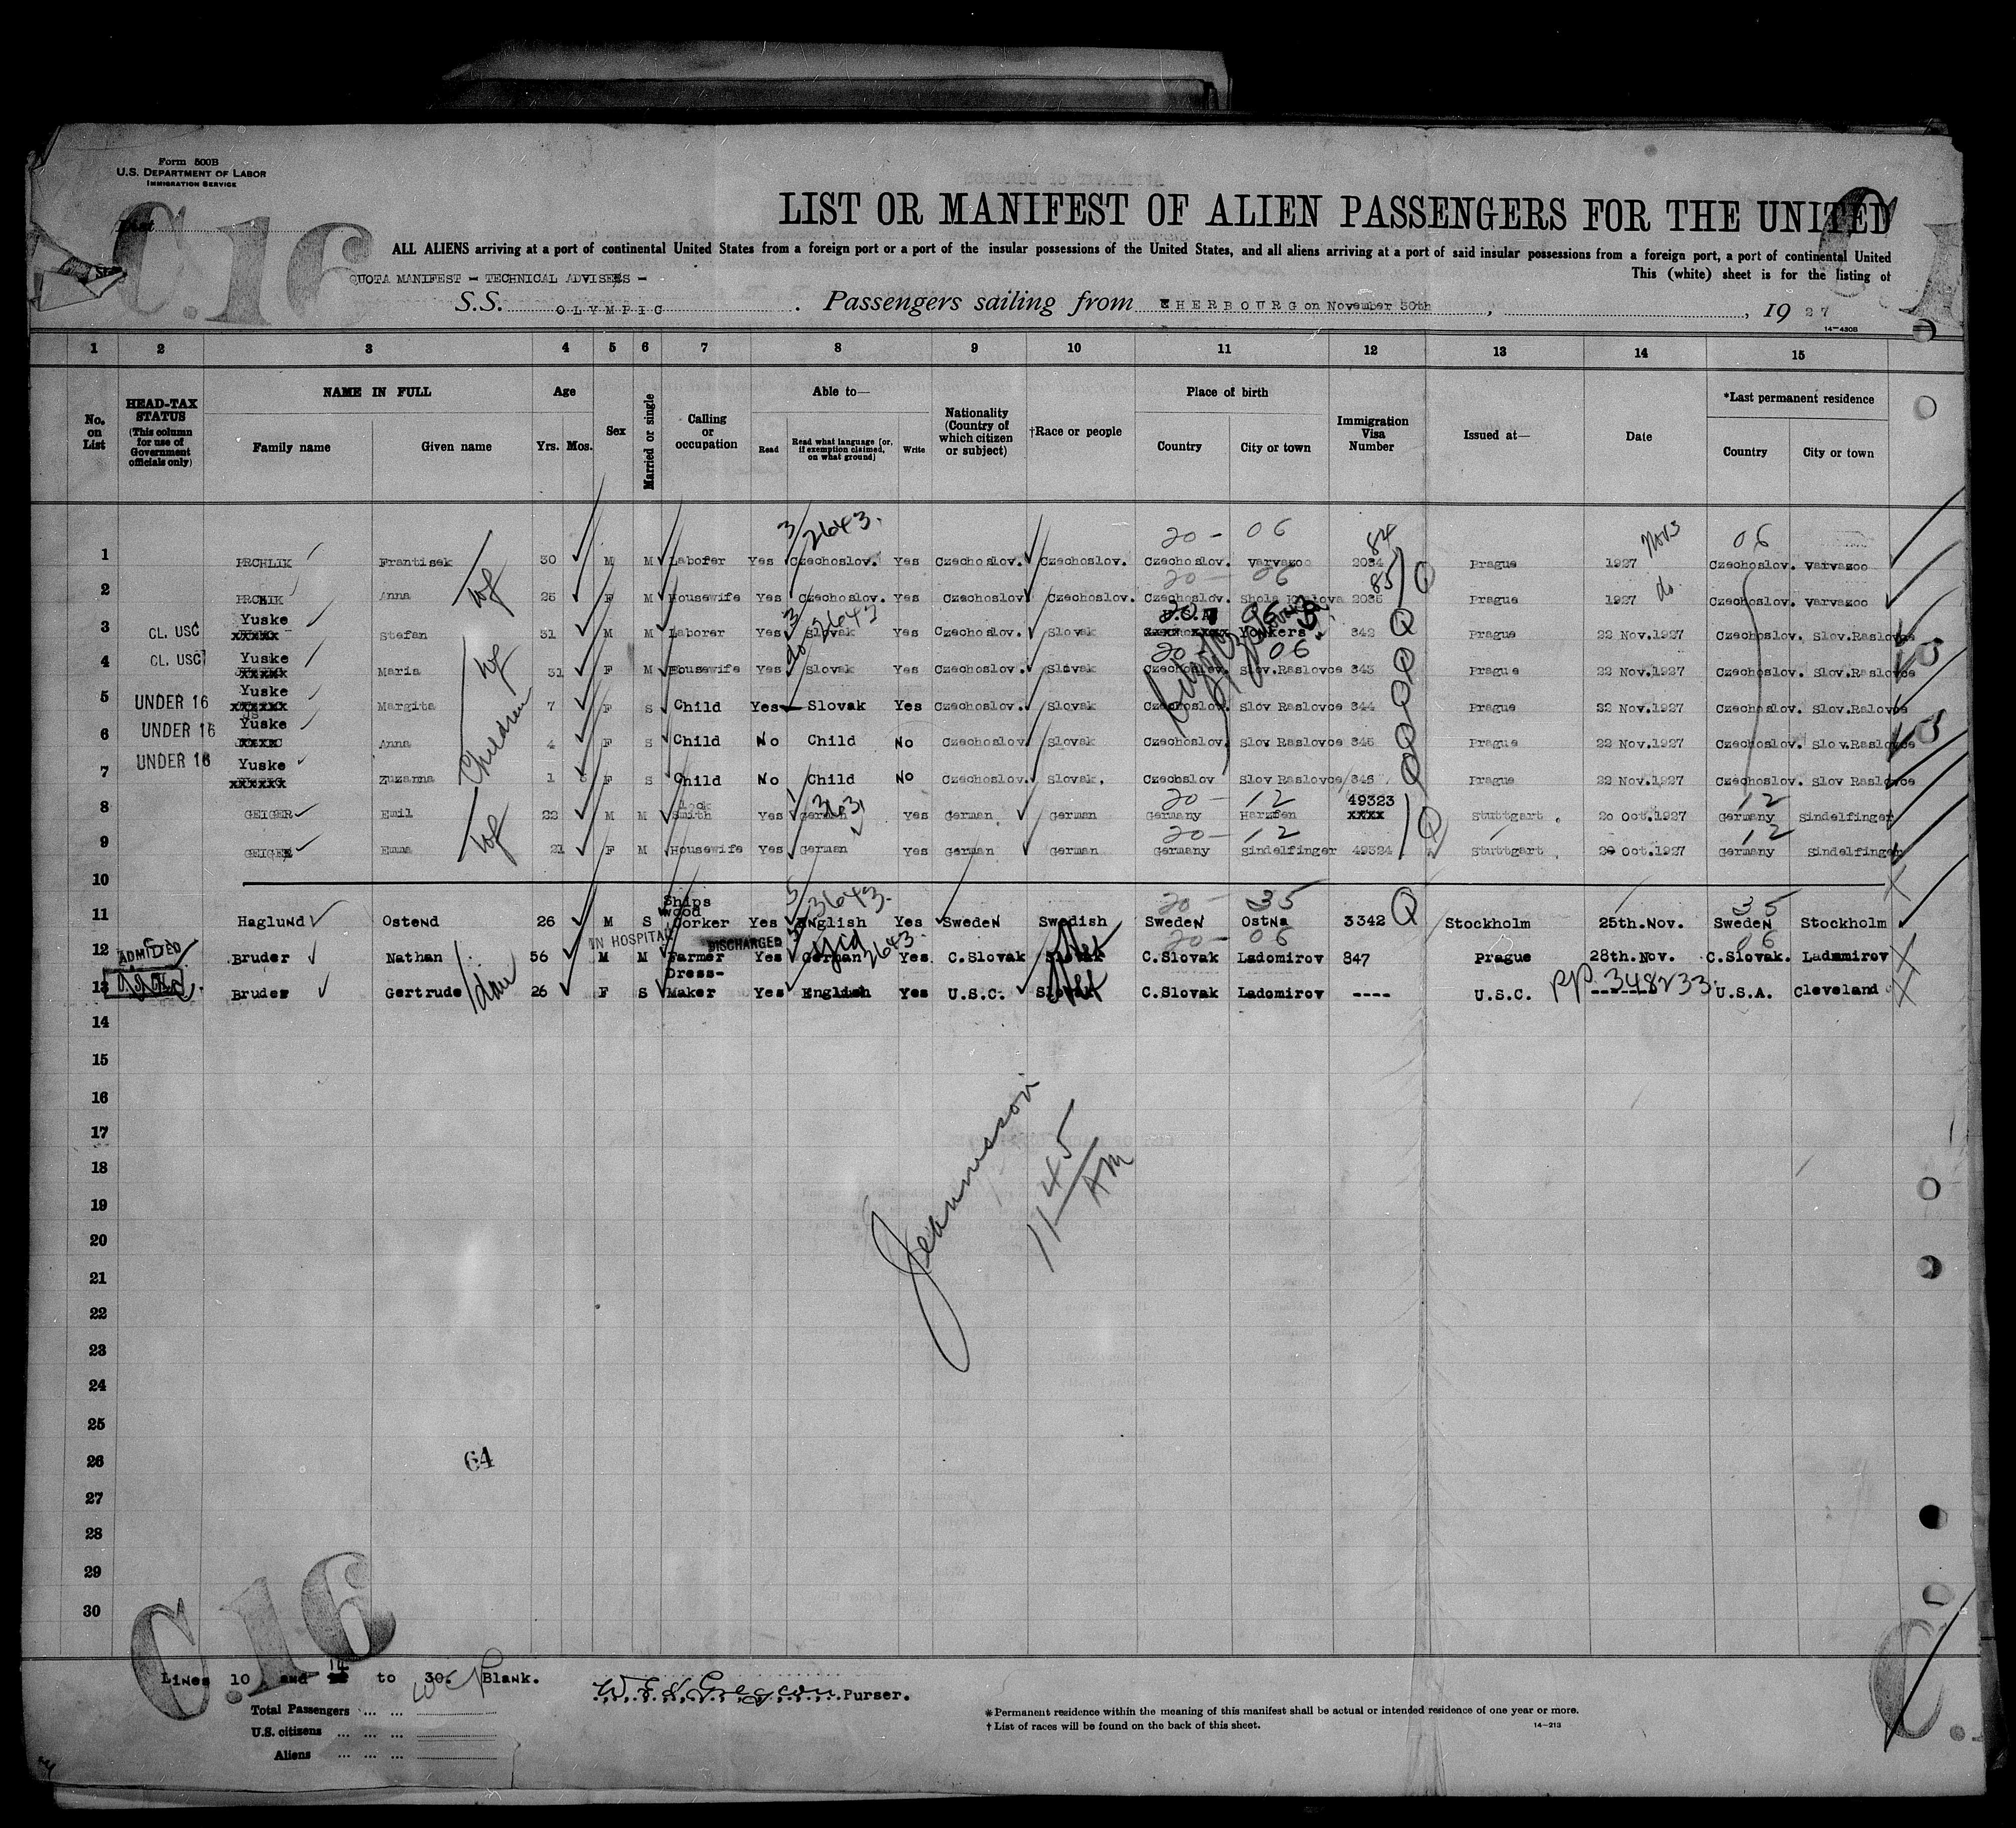 Form 500B
U.S. DEPARTMENT OF LABOR
IMMIGRATION SERVICE
C.16
LIST OR MANIFEST OF ALIEN PASSENGERS FOR THE UNITED
ALL ALIENS arriving at a port of continental United States from a foreign port or a port of the insular possessions of the United States, and all aliens arriving at a port of said insular possessions from a foreign port, a port of continental United
This (white) sheet is for the listing of
QUOTA MANIFEST - TECHNICAL ADVISES -
S.S. OLYMPIC . Passengers sailing from CHERBOURG on November 30th , , 19 27
14-430B
1 2 3 4 5 6 7 8 9 10 11 12 13 14 15
No. on List
HEAD-TAX STATUS (This column for use of Government officials only)
NAME IN FULL Family name Given name
Age Yrs. Mos.
Sex
Married or single
Calling or occupation
Able to— Read Read what language (or, if exemption claimed, on what ground) Write
Nationality (Country of which citizen or subject)
†Race or people
Place of birth Country City or town
Immigration Visa Number
Issued at—
Date
*Last permanent residence Country City or town
3/2643. 20 - 06 84 Nov 3 06
1 PRCHLIK Frantisek 30 M M Laborer Yes Czechoslov. Yes Czechoslov. Czechoslov. Czechoslov. Varvazoo 2034 Prague 1927 Czechoslov. Varvazoo
20 - 06 85 Q do
2 Anna wf 25 F M Housewife Yes Czechoslov. Yes Czechoslov. Czechoslov. Czechoslov. 2035 Prague 1927 Czechoslov. Varvazoo
3 CL. USC Yuske xxxxx Stefan 31 M M Laborer Yes Slovak Yes Czechoslov. Slovak Yonkers 342 Q Prague 22 Nov.1927 Czechoslov. Slov.Raslovce
20 - 06
4 CL. USC Yuske xxxxx Maria wf 31 F M Housewife Yes Slovak Yes Czechoslov. Slovak Czechoslov. Slov.Raslovce 343 Q Prague 22 Nov.1927 Czechoslov. Slov.Raslovce
5 UNDER 16 Yuske xxxxx Margita 7 F S Child Yes Slovak Yes Czechoslov. Slovak Czechoslov. Slov Raslovce 344 Q Prague 22 Nov.1927 Czechoslov. Slov.Ralovce
6 UNDER 16 Yuske xxxx Anna Children 4 F S Child No Child No Czechoslov. Slovak Czechoslov. Slov Raslovce 345 Q Prague 22 Nov.1927 Czechoslov. Slov.Raslovce
7 UNDER 16 Yuske xxxxx Zuzanna 1 F S Child No Child No Czechoslov. Slovak. Czechoslov Slov Raslovce 346 Q Prague 22 Nov.1927 Czechoslov. Slov Raslovce
20 - 12 49323 12
8 GEIGER Emil 22 M M lock Smith Yes German Yes German German Germany xxxx Q Stuttgart. 20 Oct.1927 Germany Sindelfinger
20 - 12 12
9 GEIGER Emma wf 21 F M Housewife Yes German Yes German German Germany Sindelfinger 49324 Stuttgart. 20 Oct.1927 Germany Sindelfinger
10
3/2643. 20 - 35 35
11 Haglund Ostend 26 M S Ships wood Worker Yes English Yes Sweden Swedish Sweden Ostna 3342 Q Stockholm 25th.Nov. Sweden Stockholm
IN HOSPITAL DISCHARGED 2643 20 - 06 06
12 ADMITTED Bruder Nathan 56 M M Farmer Yes German Yid Yes. C.Slovak Slovak Heb C.Slovak Ladomirov 847 Prague 28th.Nov. C.Slovak. Ladamirov
13 Bruder Gertrude dau 26 F S Dress-Maker Yes English Yes U.S.C. Slovak Heb C.Slovak Ladomirov ---- U.S.C. PP 348233 U.S.A. Cleveland
14
15
16
17
18
19
20
21
22
23
24
25
26
27
28
29
30
11 45 AM
64
C.16
Lines 10 and 14 to 30. Blank.
Purser.
Total Passengers ... ...
U.S. citizens ... ... ...
Aliens ... ... ...
*Permanent residence within the meaning of this manifest shall be actual or intended residence of one year or more.
† List of races will be found on the back of this sheet.
14-213
C.